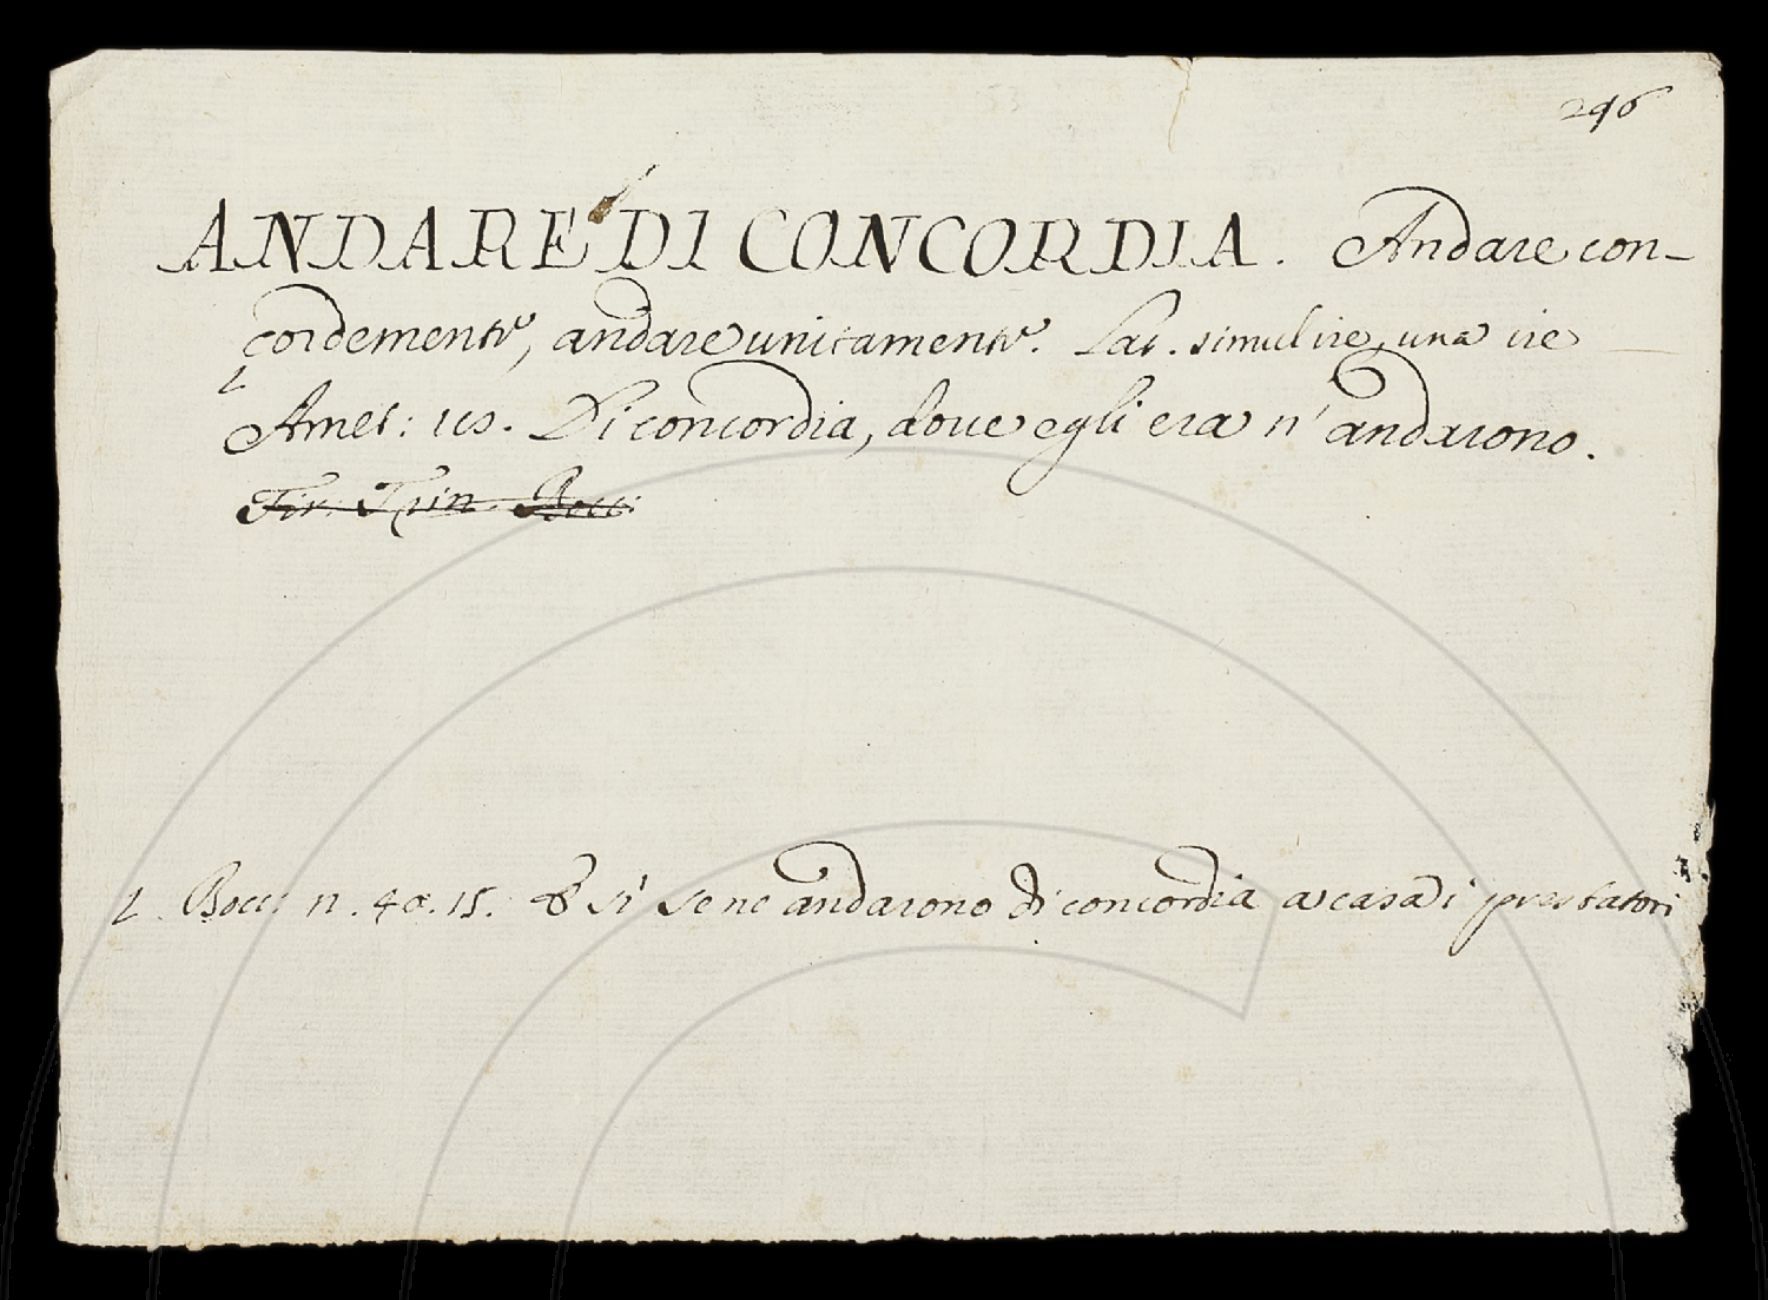 296
ANDARE DI CONCORDIA. Andare con-
cordemente, andare unitamente. Lat. simul ire, una ire
Amet: 110. Di concordia, dove egli era n' andarono.
Fir.
Bocc: n. 40. 15. sì se ne andarono di concordia a casa i prestatori